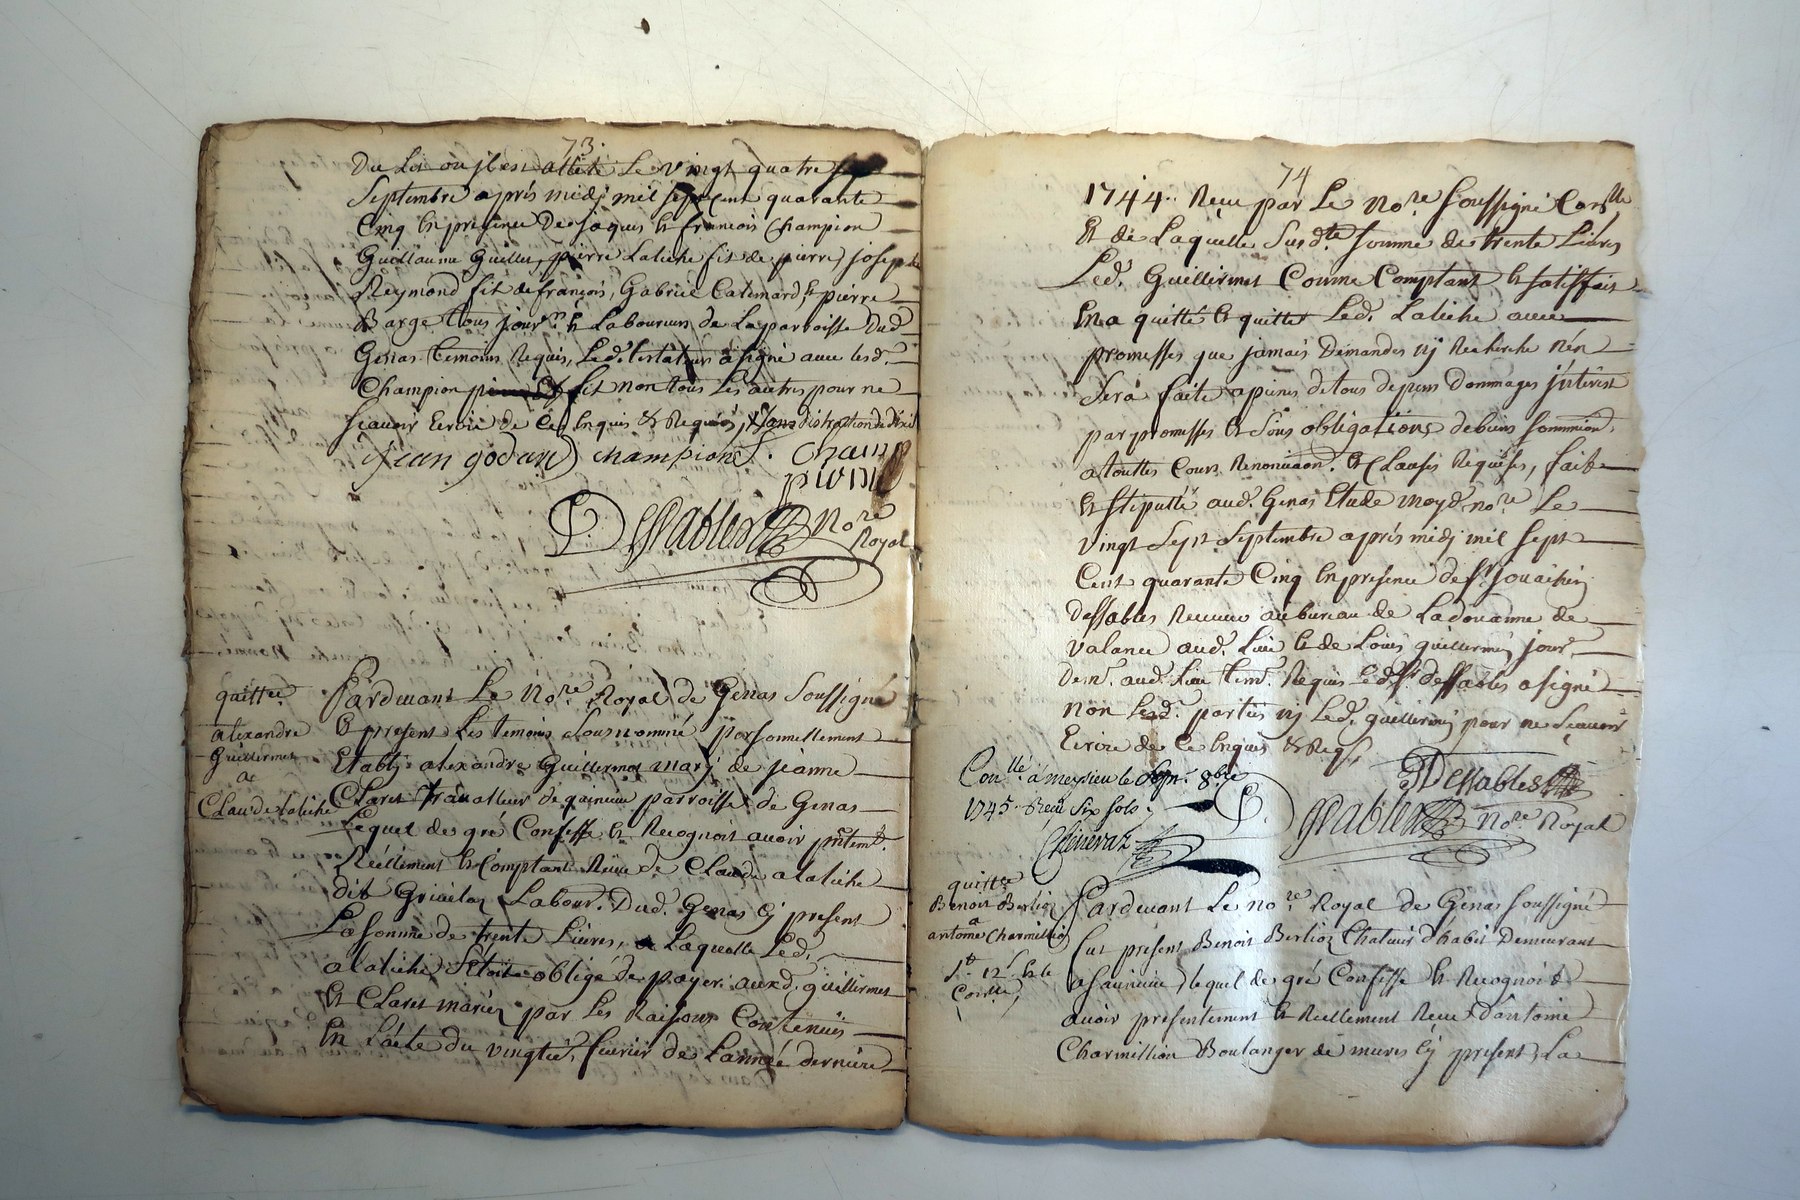 73.
Du lit ou jl est allité Le vingt quatre
Septembre aprés midj mil sept cent quarante
Cinq En presence De jaques & francois Champion
Guillaume Guillet, pierre Latiche fit de pierre, joseph
Reymond fit de françois, Gabriel Catimard & pierre
Barge tous jour.rs & Laboureurs de La parroisse Dud.
Genas temoins Requis, Led. testateur a signé avec lesd.
Champion fit non tous Les autres pour ne
Scavoir Ecrire de Ce Enquis & Requis, sans distraction
jean godard champion. Cham
pion
Dessables No.re
Royal
quitt.ce
alexandre
Guillermet
a
Claude Latiche
Pardevant Le No.re Royal de Genas Soussigné
& present Les temoins Sousnommé personnellement
Etably alexandre Guillermet marj de jeanne
Claret travailleur de parroisse de Genas
Lequel de gré Confesse & Recognoit avoir pntem.t
Réellement & Comptant Receu de Claude alatiche
dit Labour. Dud. Genas Cy present
La Somme de trente Livres, a Laquelle Led.
alatiche S'étoit obligé de payer auxd. guillermet
& Claret mariés par Les Raisons Contenües
En L'acte du vingtie. fevrier de L'année derniere
74
1744. Receu par Le No.re Soussigné Con.llé
& de Laquelle Susd.te Somme de trente Livres
Led. Guillermet Comme Comptant & satisffait
En a quitté & quitte Led. Latiche avec
promesses que jamais Demandes nj Recherche n'en
Sera faite a peines de tous depens Dommages jnterest
par promesses & Sous obligations de biens Soummiõn.
a touttes Cours Renonciaõn. & Clauses Requises, fait
& stipullé aud. Genas Etude moyd. no.re Le
vingt Sept Septembre aprés midj mil Sept
Cent quarante Cinq En presence de S.r jouachin
Dessables Receveur au bureau de La douanne de
valance aud. Lieu & de Louis guillermin jour.
Dem.t aud. Lieu tem. Requis Led. S.r dessables a signé
non Lesd. parties nj Led. guillermin pour ne Scavoir
Ecrire de Ce Enquis & Req.
Con.llé a meyzieu le 8.bre
1745. Receu Six sols
Dessables
Dessables No.re Royal
quitt.ce
Benoit Berlioz
a
antoine Charmillion
Con.llé
Pardevant Le no.re Royal de Genas soussigné
fut present Benoit Berlioz d'habit Demeurant
lequel de gré Confesse & Recognoit
avoir presentement & Réellement Receu D'antoine
Charmillion Boulanger de mures Cy present, La